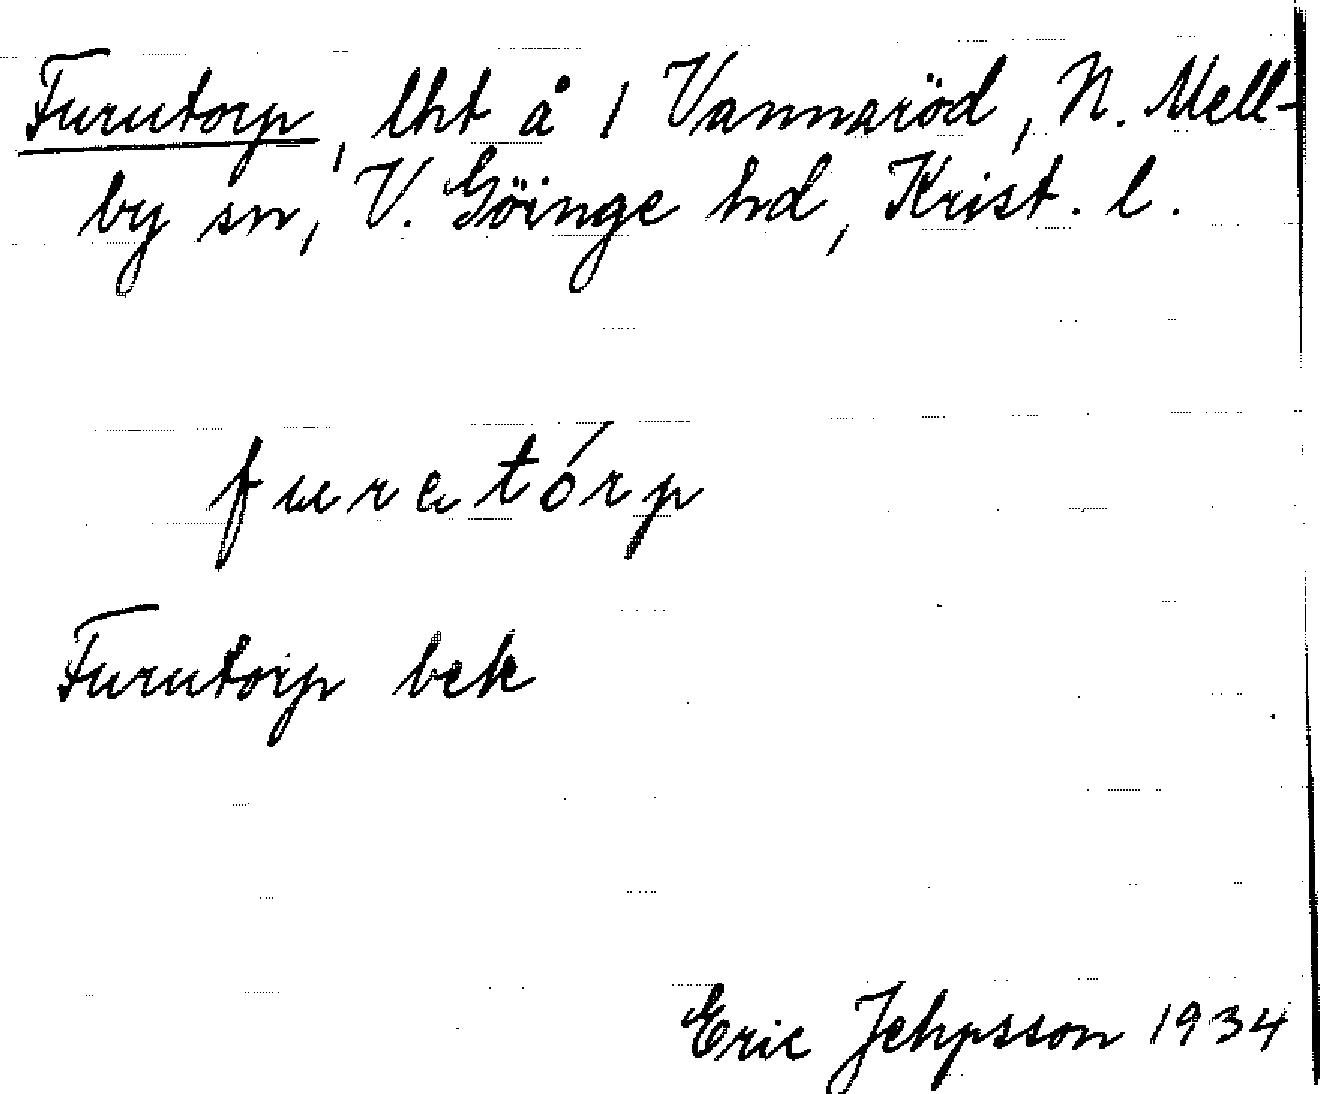 Furutorp, lht å 1 Vannaröd, N. Mell-
by sn, V. Göinge hd, Krist. l.
furatórp
Furutorp bek
Eric Jehpsson 1934